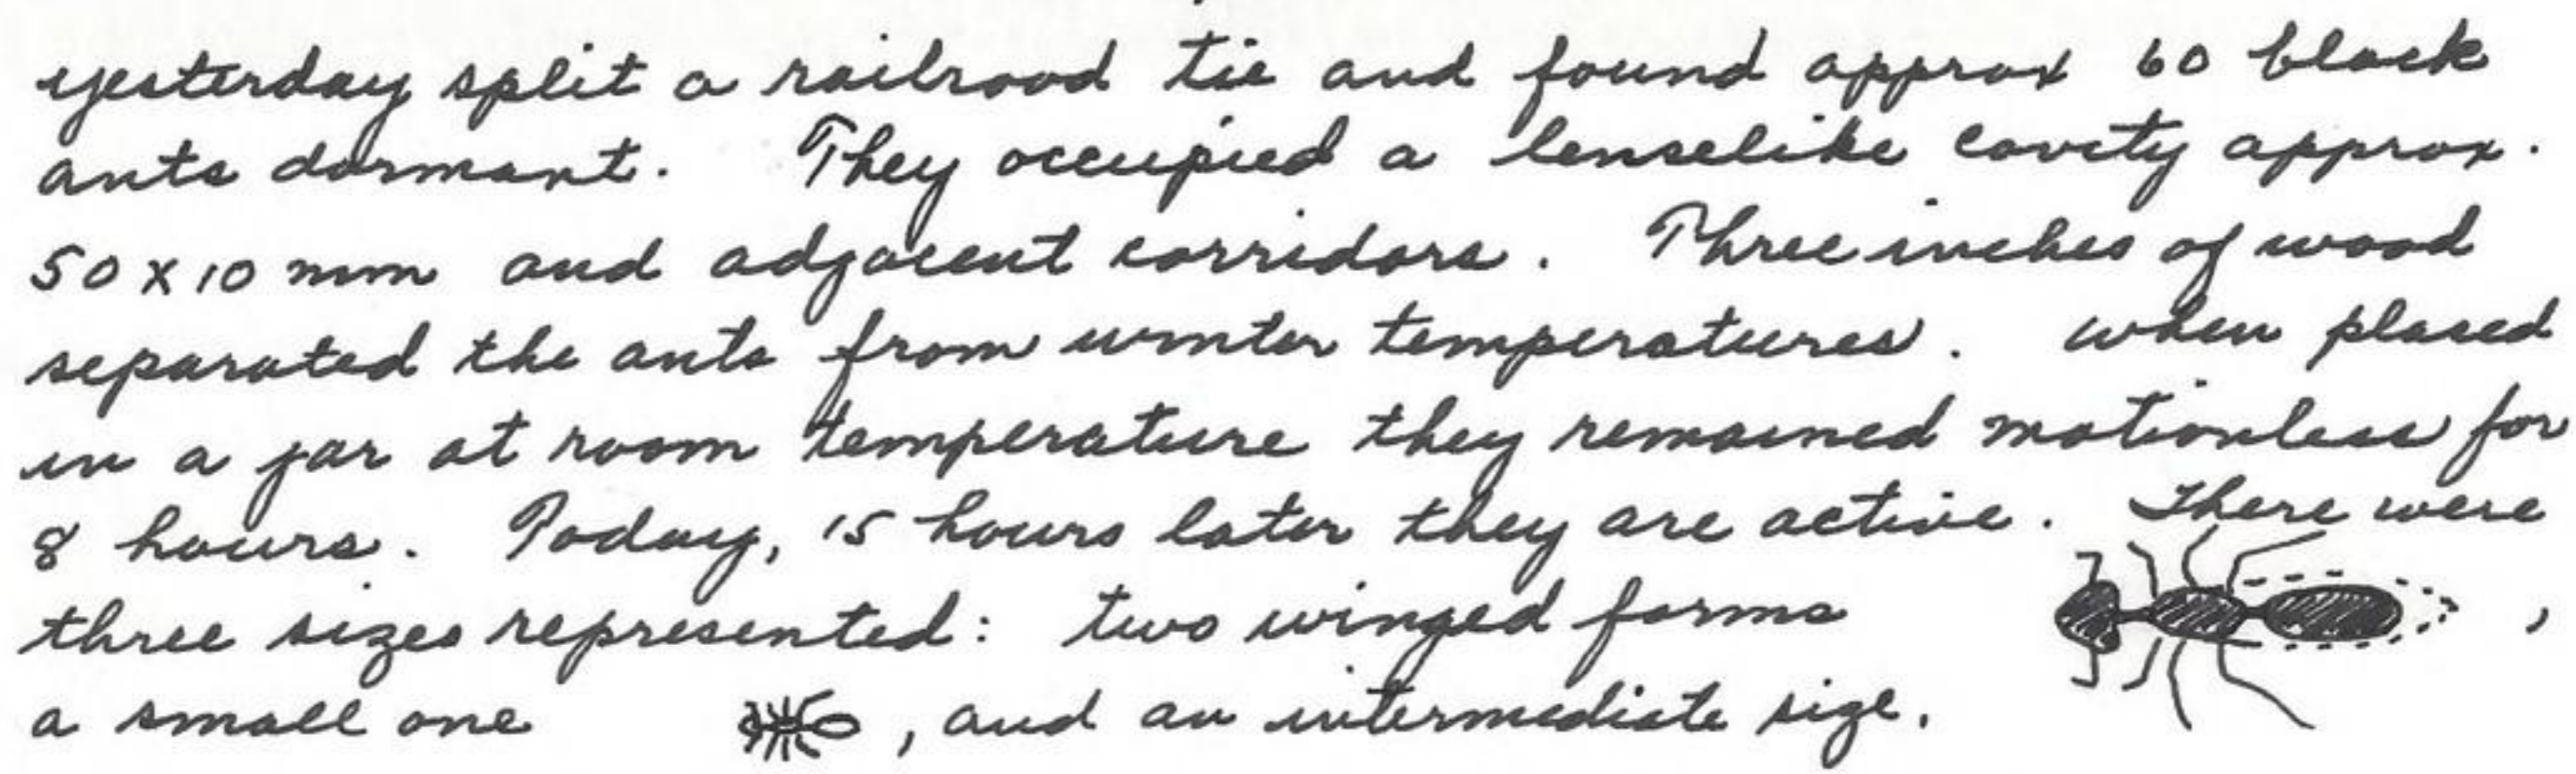 yesterday split a railroad tie and found approx 60 black
ants dormant. They occupied a lenselike cavity approx.
50 x 10 mm and adjacent corridors. Three inches of wood
separated the ants from winter temperatures. when placed
in a jar at room temperature they remained motionless for
8 hours. Today, 15 hours later they are active. There were
three sizes represented: two winged forms ,
a small one , and an intermediate size.